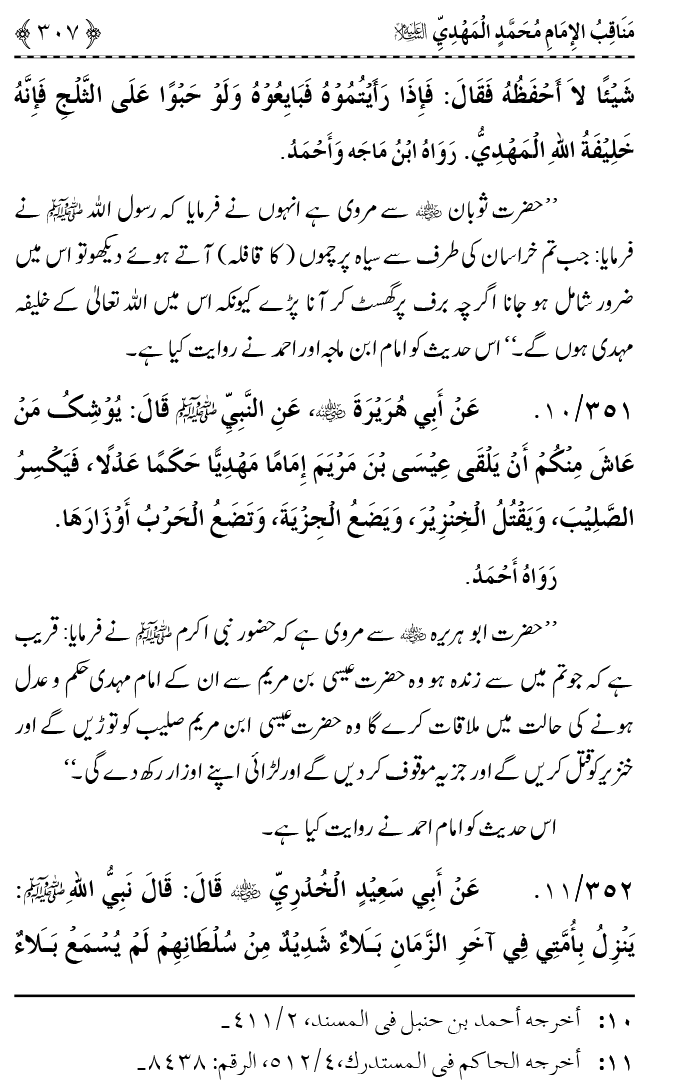 مَنَاقِبُ الإِمَامِ مُحَمَّدٍ الْمَهْدِيِّ ﴿ ٣٠٧ ﴾
شَيْئًا لاَ أَحْفَظُهُ فَقَالَ: فَإِذَا رَأَيْتُمُوْهُ فَبَايِعُوْهُ وَلَوْ حَبْوًا عَلَى الثَّلْجِ فَإِنَّهُ
خَلِيْفَةُ اللهِ الْمَهْدِيُّ. رَوَاهُ ابْنُ مَاجَه وَأَحْمَدُ.
’’حضرت ثوبان رضی اللہ عنہ سے مروی ہے انہوں نے فرمایا کہ رسول اللہ ﷺ نے
فرمایا: جب تم خراسان کی طرف سے سیاہ پرچموں (کا قافلہ) آتے ہوئے دیکھو تو اس میں
ضرور شامل ہو جانا اگرچہ برف پر گھسٹ کر آنا پڑے کیونکہ اس میں اللہ تعالیٰ کے خلیفہ
مہدی ہوں گے۔‘‘ اس حدیث کو امام ابن ماجہ اور احمد نے روایت کیا ہے۔
١٠/٣٥١. عَنْ أَبِي هُرَيْرَةَ رضی اللہ عنہ، عَنِ النَّبِيِّ ﷺ قَالَ: يُوْشِكُ مَنْ
عَاشَ مِنْكُمْ أَنْ يَلْقَى عِيْسَى بْنَ مَرْيَمَ إِمَامًا مَهْدِيًّا حَكَمًا عَدْلًا، فَيَكْسِرُ
الصَّلِيْبَ، وَيَقْتُلُ الْخِنْزِيْرَ، وَيَضَعُ الْجِزْيَةَ، وَتَضَعُ الْحَرْبُ أَوْزَارَهَا.
رَوَاهُ أَحْمَدُ.
’’حضرت ابو ہریرہ رضی اللہ عنہ سے مروی ہے کہ حضور نبی اکرم ﷺ نے فرمایا: قریب
ہے کہ جو تم میں سے زندہ ہو وہ حضرت عیسیٰ بن مریم سے ان کے امام مہدی حکم و عدل
ہونے کی حالت میں ملاقات کرے گا وہ حضرت عیسیٰ ابن مریم صلیب کو توڑیں گے اور
خنزیر کو قتل کریں گے اور جزیہ موقوف کر دیں گے اور لڑائی اپنے اوزار رکھ دے گی۔‘‘
اس حدیث کو امام احمد نے روایت کیا ہے۔
١١/٣٥٢. عَنْ أَبِي سَعِيْدٍ الْخُدْرِيِّ رضی اللہ عنہ قَالَ: قَالَ نَبِيُّ اللهِ ﷺ:
يَنْزِلُ بِأُمَّتِي فِي آخَرِ الزَّمَانِ بَـلَاءٌ شَدِيْدٌ مِنْ سُلْطَانِهِمْ لَمْ يُسْمَعْ بَـلَاءٌ
١٠: أخرجه أحمد بن حنبل فى المسند، ٤١١/٢۔
١١: أخرجه الحاكم فى المستدرك، ٥١٢/٤، الرقم: ٨٤٣٨۔